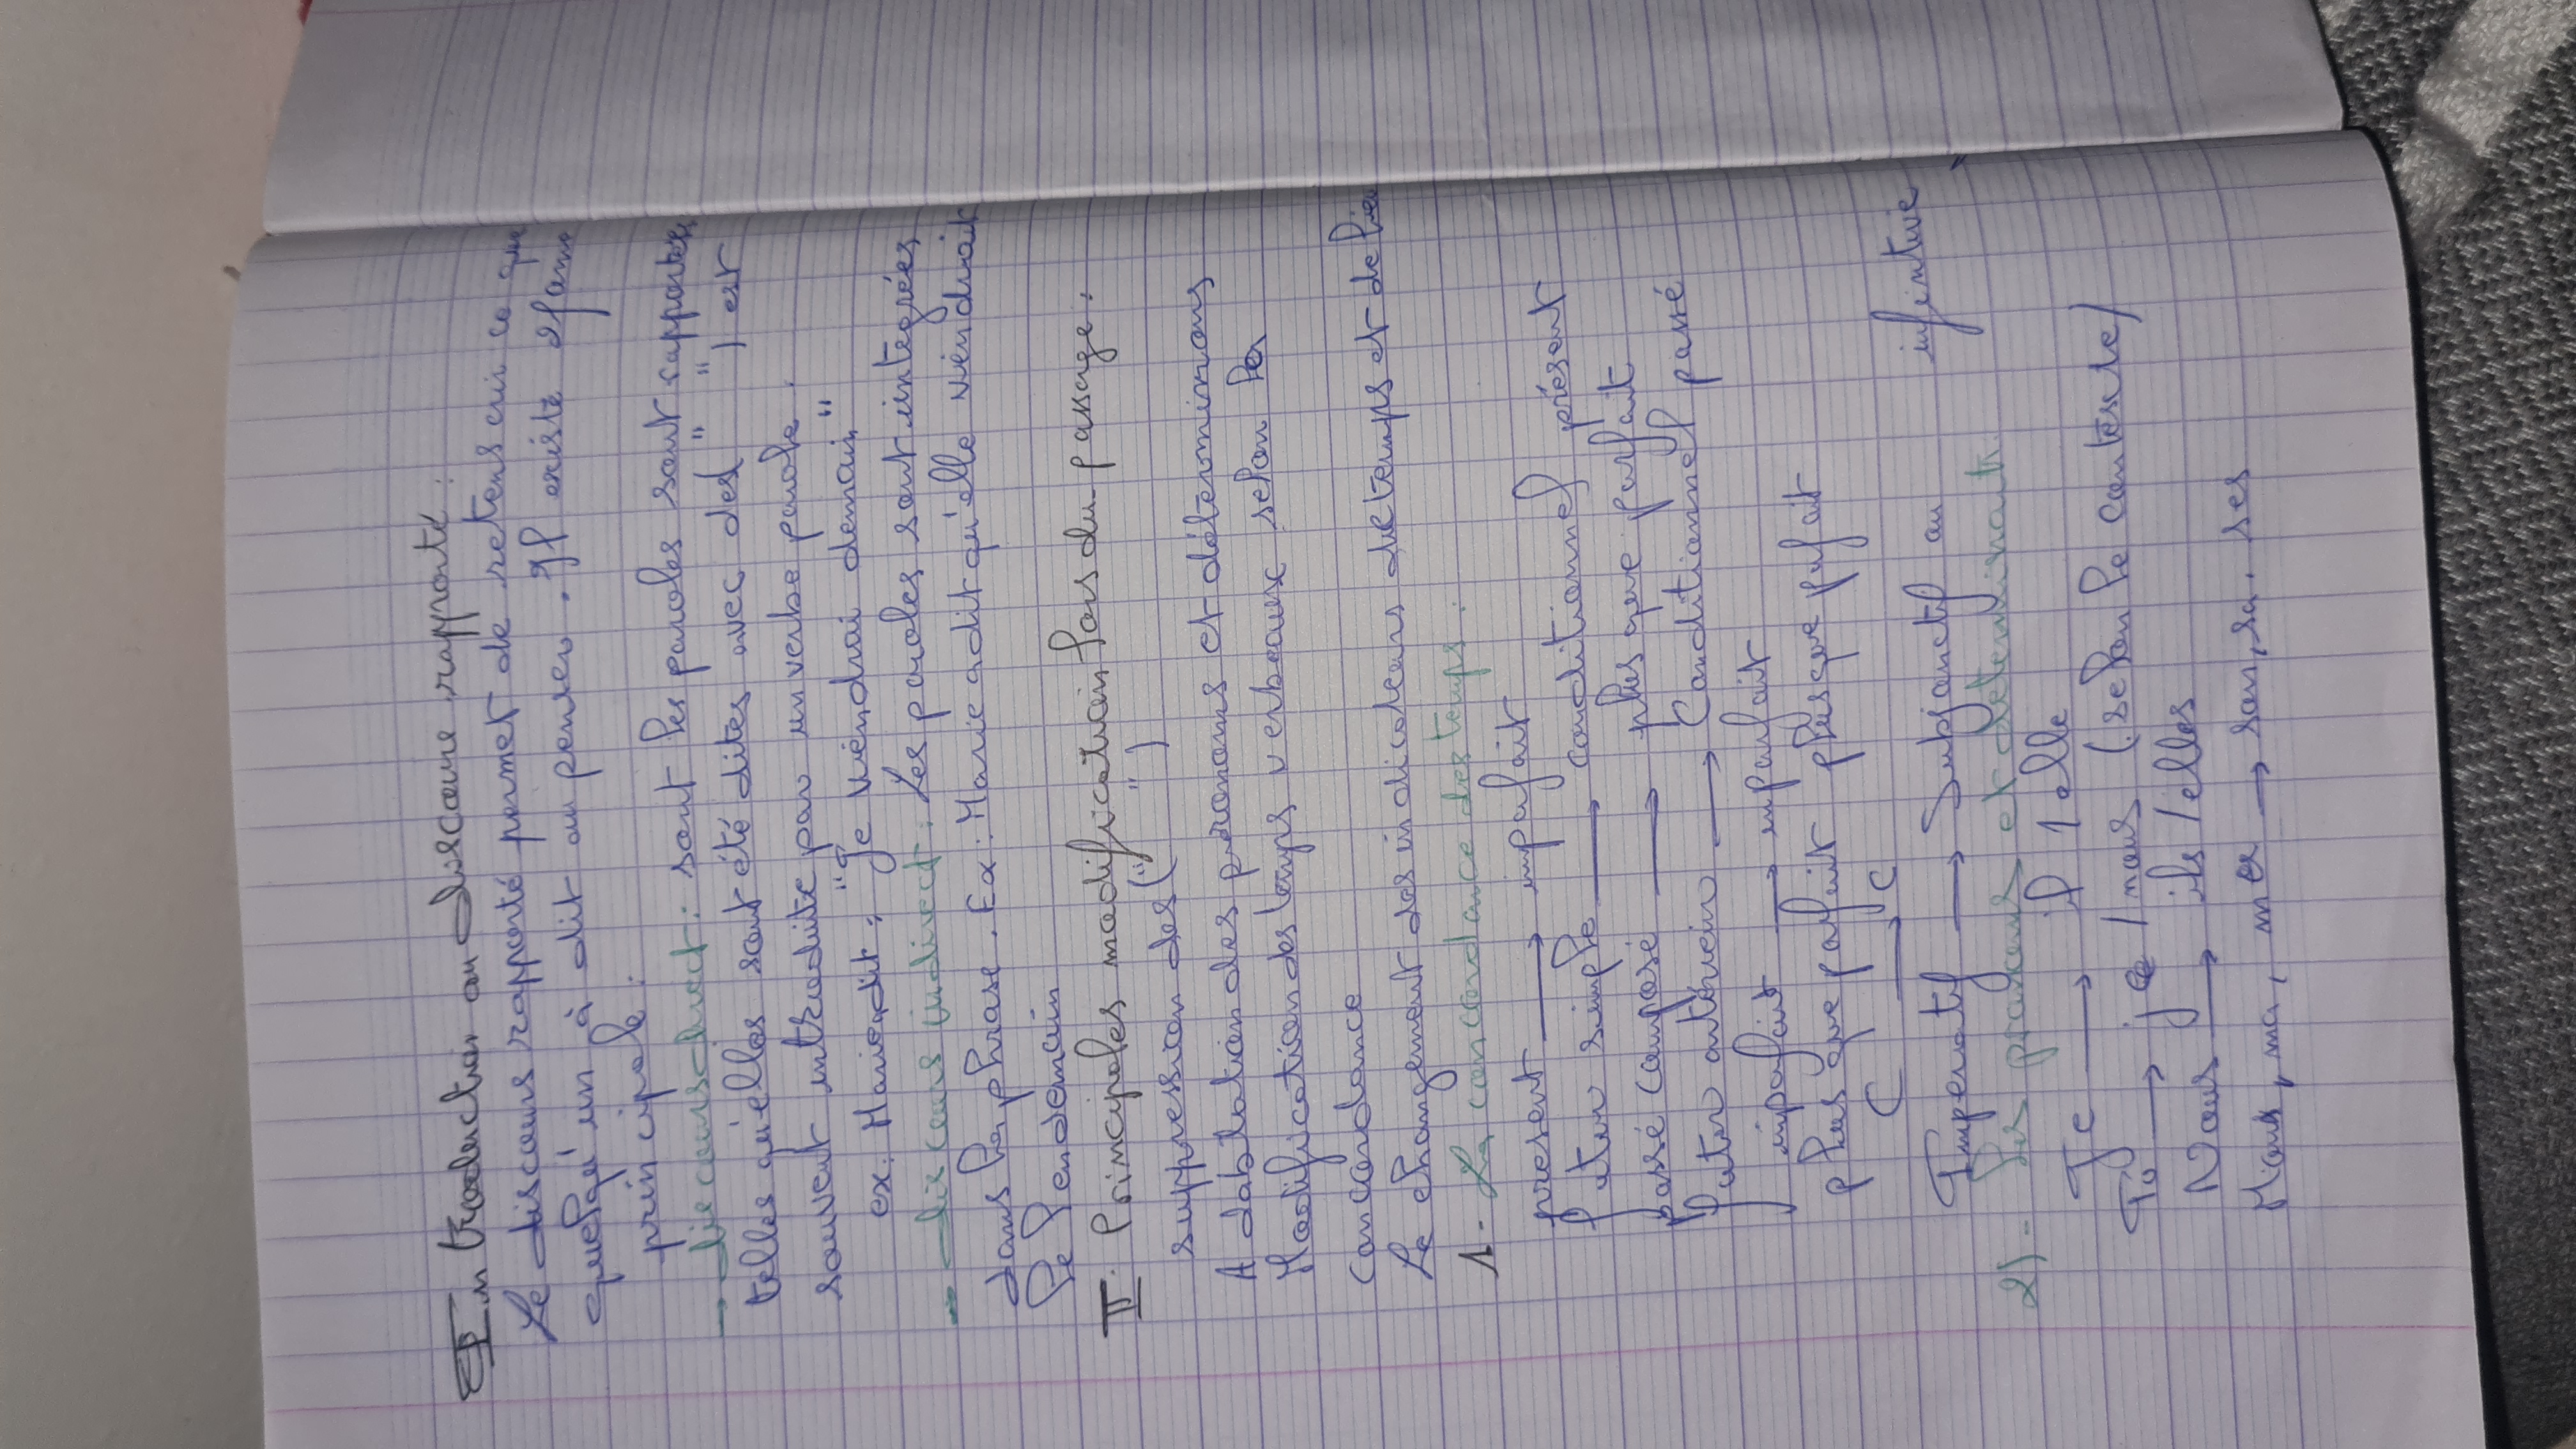 Introduction au discours rapporté :
Le discours rapporté permet de retens crir ce que
quelqu'un à dit ou penser. Il existe 2 fame
principale :
→ discours direct : sont les paroles sont rapportées
telles qu'elles sont été dites avec des (" ") est
souvent introduite par un verbe parole.
ex. Marie dit : "Je viendrai demain"
→ discours indirect : Les paroles sont intégrées
dans la phrase. Ex : Marie a dit qu'elle viendrait
le lendemain
II. Principales modification lors du passage :
suppression des (" ")
Adabtation des pronoms et déterminans
Modification des temps verbeaux selon la
concordance
Le changement des indicateurs de temps et de lieu
1- La concordance des temps :
present → imparfait
futur simple → conditionnel présent
passé composé → plus que parfait
futur antérieur → Conditionnel passé
imparfait → imparfait
plus que parfait plus que parfait
C → C
Imperatif → Subjonctif ou infinitive
2)- Les pronoms et determinants
Je → il / elle
Tu → je / nous (selon le contexte)
Nous → ils / elles
Mon, ma, mes → son, sa. ses